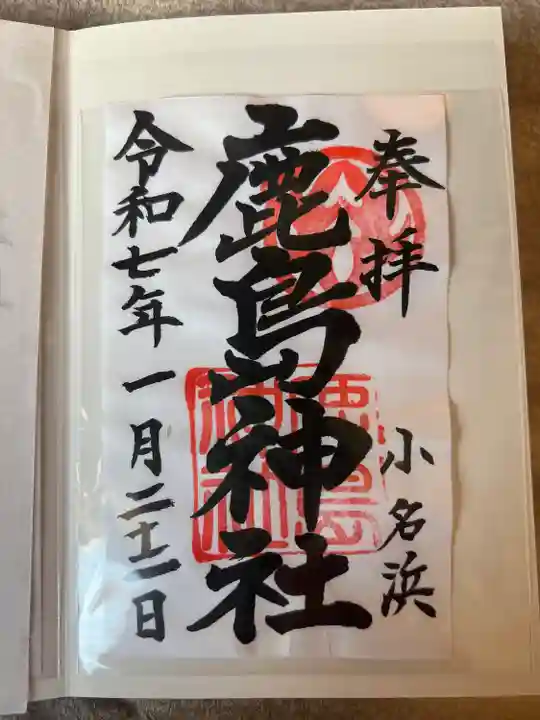 奉拝
小名浜
鹿島神社
令和七年一月二十一日
鹿島神社